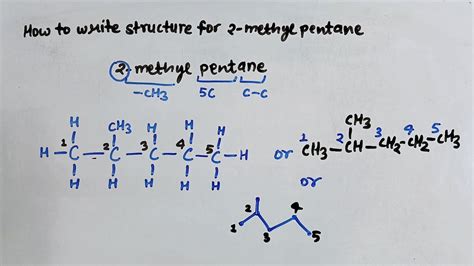 How to write structure for 2-methyl pentane
2-methyl pentane
-CH3 5C C-C
H CH3 H H H
H-C1-C2-C3-C4-C5-H
H H H H H
or
CH3
1 2 3 4 5
CH3-CH-CH2-CH2-CH3
or
1 2 3 4 5